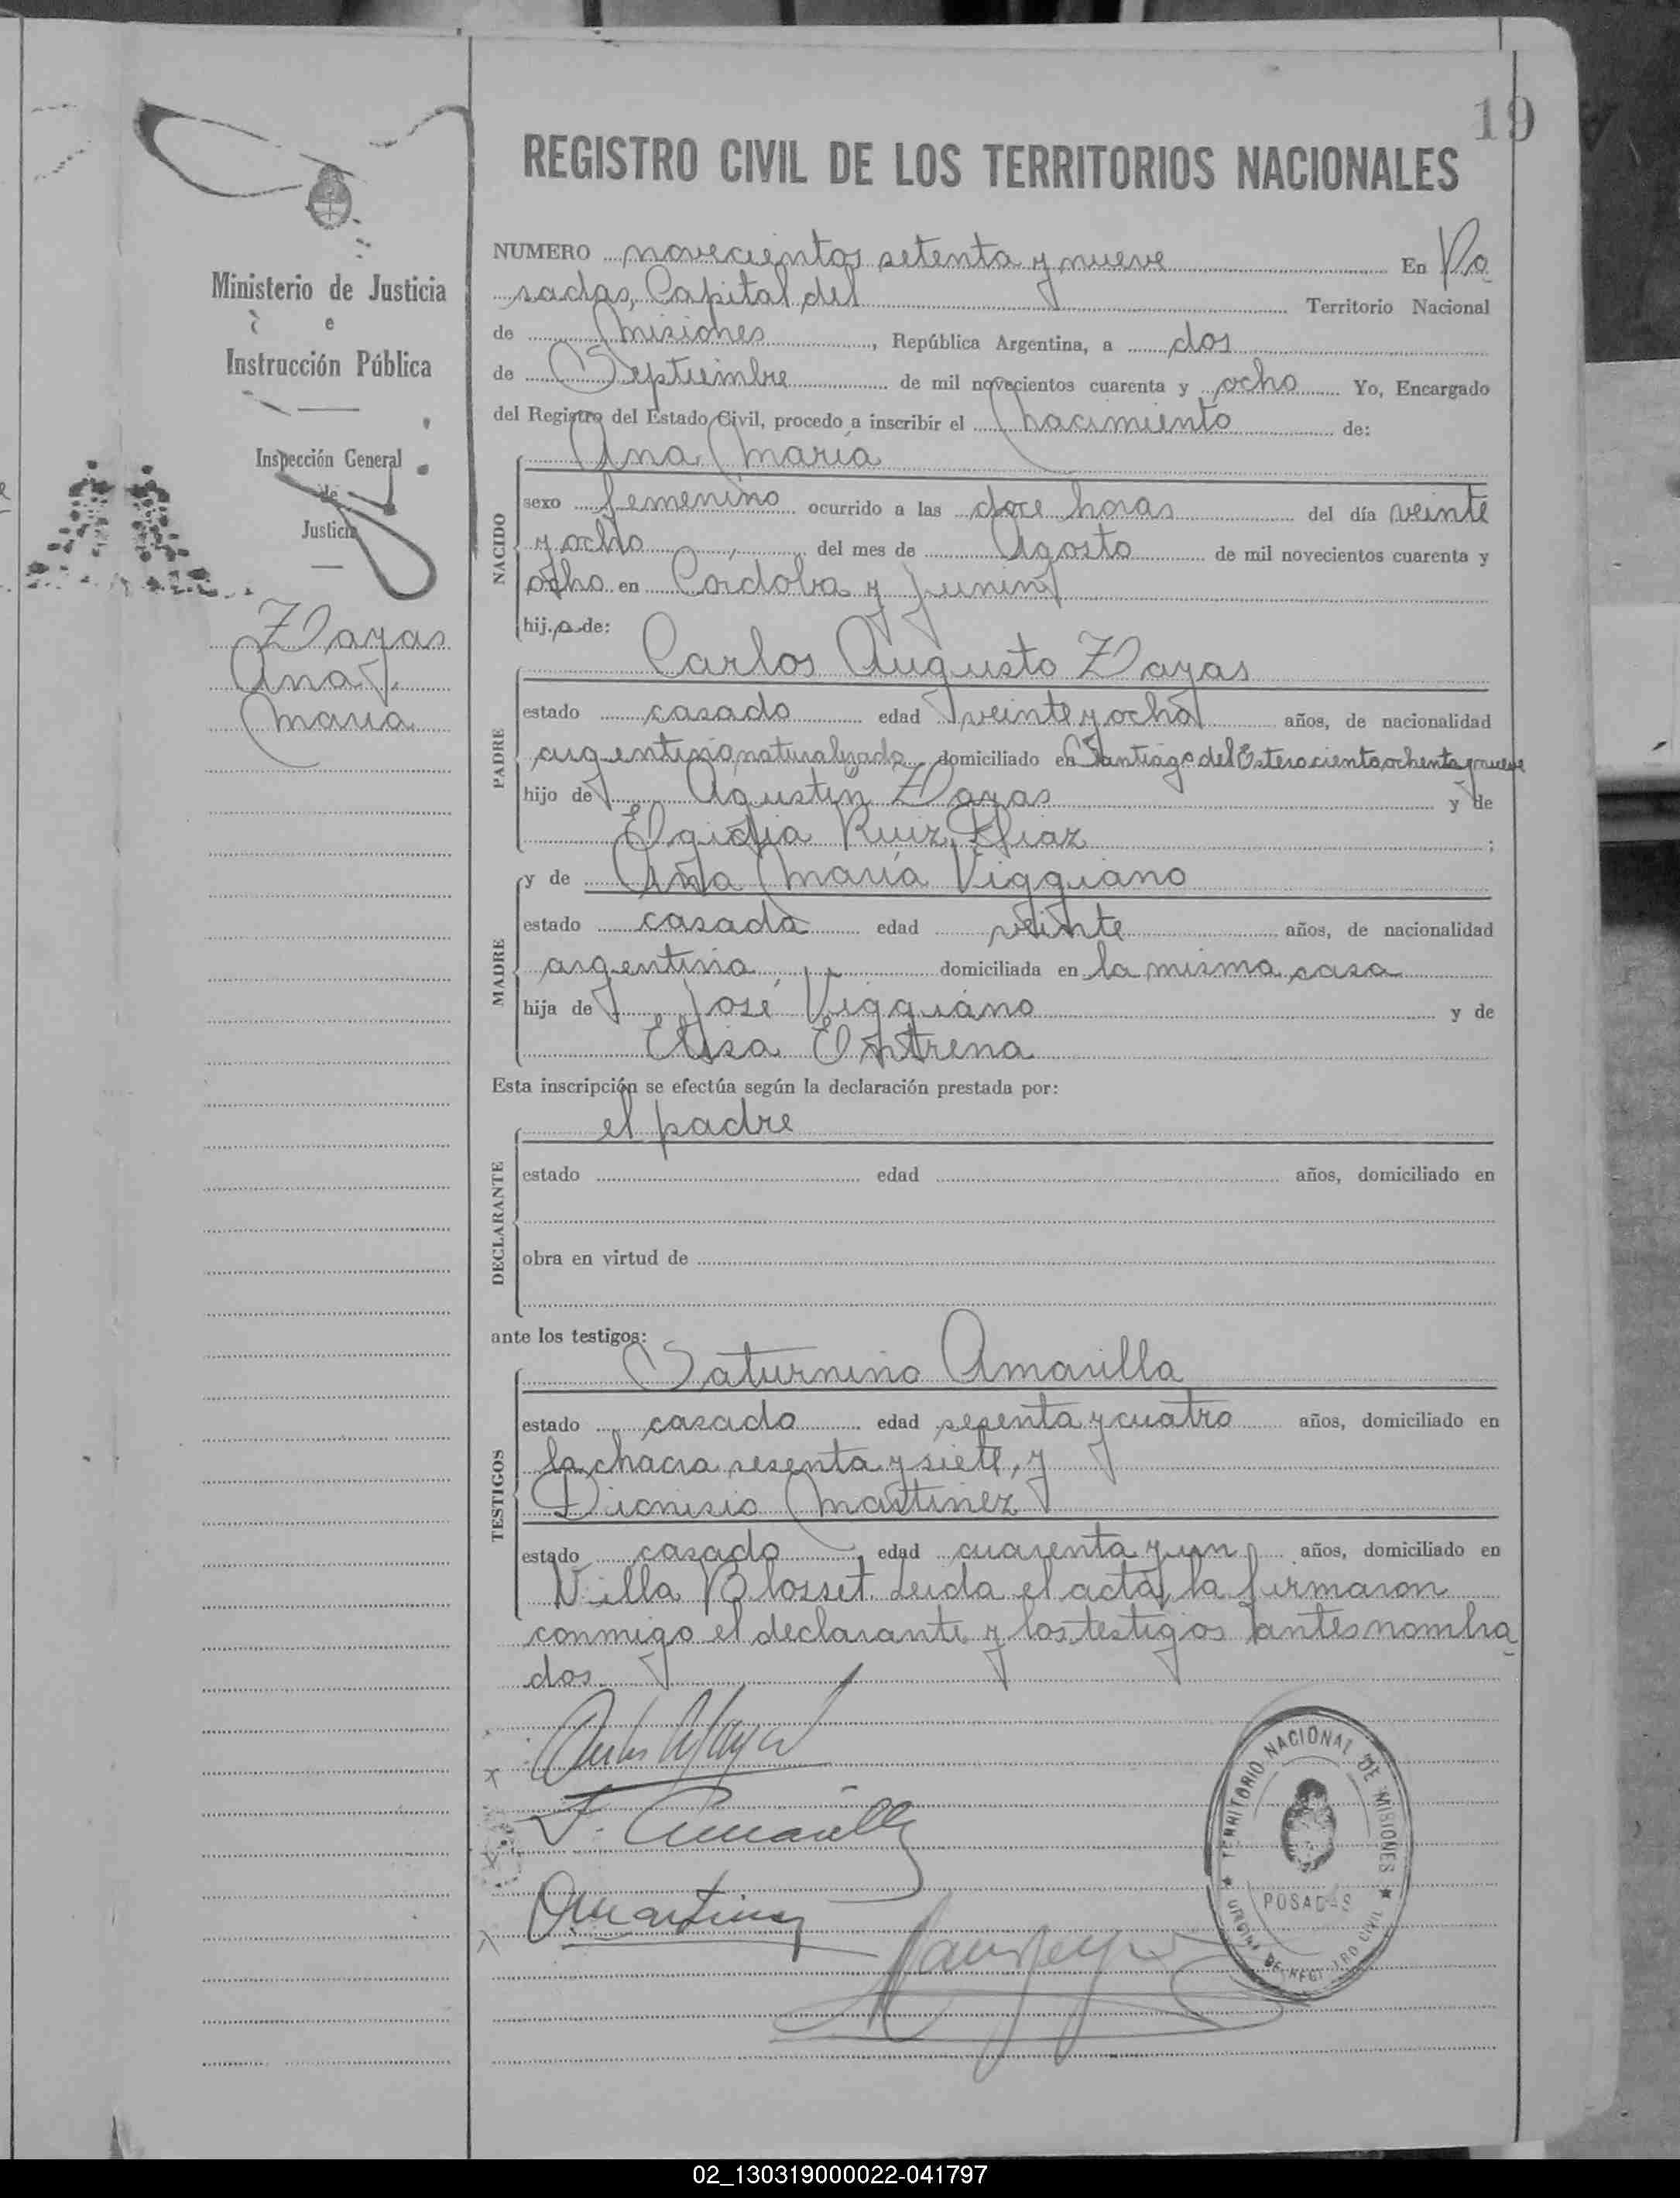 19
REGISTRO CIVIL DE LOS TERRITORIOS NACIONALES
Ministerio de Justicia
e
Instrucción Pública
Inspección General
de
Justicia
Zayas
Ana
Maria
NUMERO novecientos setenta y nueve En Po
sadas, Capital del Territorio Nacional
de Misiones, República Argentina, a dos
de Septiembre de mil novecientos cuarenta y ocho Yo, Encargado
del Registro del Estado Civil, procedo a inscribir el nacimiento de:
NACIDO
Ana Maria
sexo femenino ocurrido a las doce horas del día veinte
y ocho del mes de Agosto de mil novecientos cuarenta y
ocho en Córdoba y Junin
hija de:
PADRE
Carlos Augusto Zayas
estado casado edad veinte y ocho años, de nacionalidad
argentino naturalizado domiciliado en Santiago del Estero ciento ochenta y nueve
hijo de Agustin Zayas y de
Elgidia Ruiz Diaz ;
MADRE
y de Ana María Viggiano
estado casada edad veinte años, de nacionalidad
argentina domiciliada en la misma casa
hija de José Viggiano y de
Elisa Entrena
Esta inscripción se efectúa según la declaración prestada por:
DECLARANTE
el padre
estado edad años, domiciliado en
obra en virtud de
ante los testigos:
TESTIGOS
Saturnino Amarilla
estado casado edad sesenta y cuatro años, domiciliado en
la chacra sesenta y siete, y
Dionisio Martinez
estado casado edad cuarenta y un años, domiciliado en
Villa Blosset. Leida el acta, la firmaron
conmigo el declarante y los testigos antes nombra
dos.
S. Amarilla
DMartinez
TERRITORIO NACIONAL DE MISIONES
POSADAS
OFICINA DE REGISTRO CIVIL
02_130319000022-041797